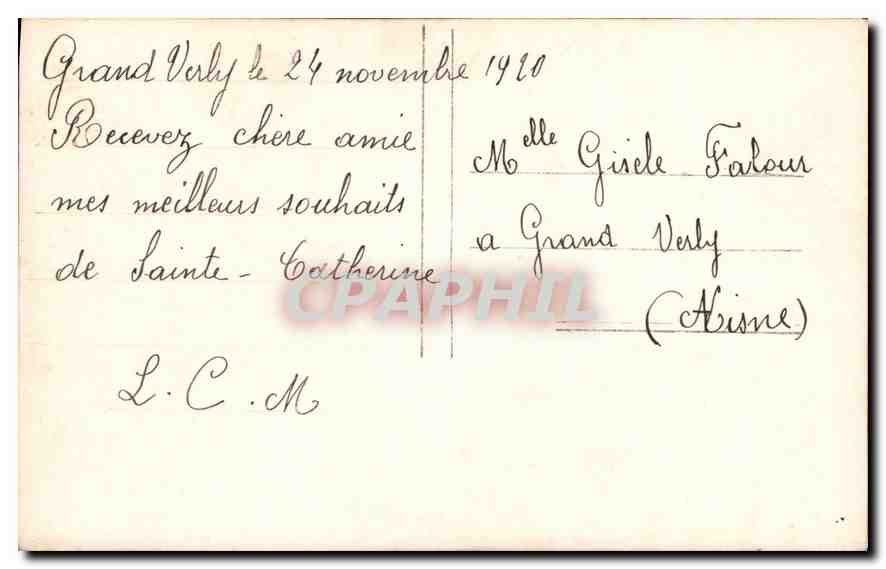 Grand Verly le 24 novembre 1920
Recevez chère amie
mes meilleurs souhaits
de Sainte - Catherine
L. C. M
Melle Gisèle Falour
a Grand Verly
(Aisne)
CPAPHIL